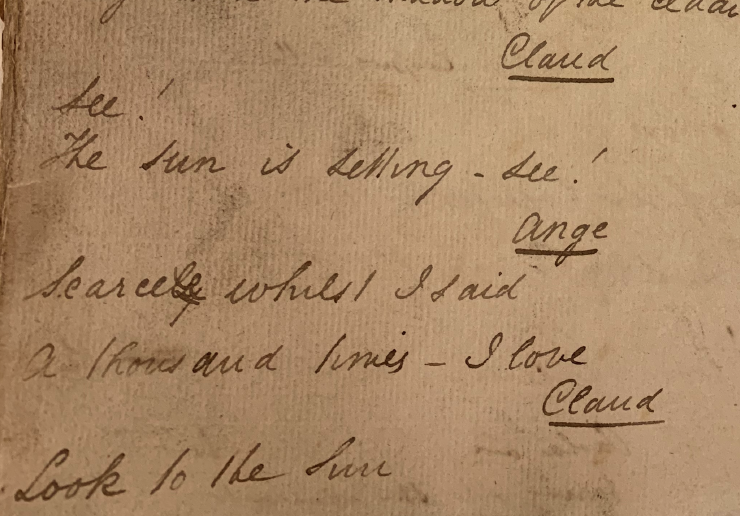 of the
Claud
See!
The sun is setting - see!
Ange
Scarcely whilst I said
A thousand times - I love
Claud
Look to the Sun